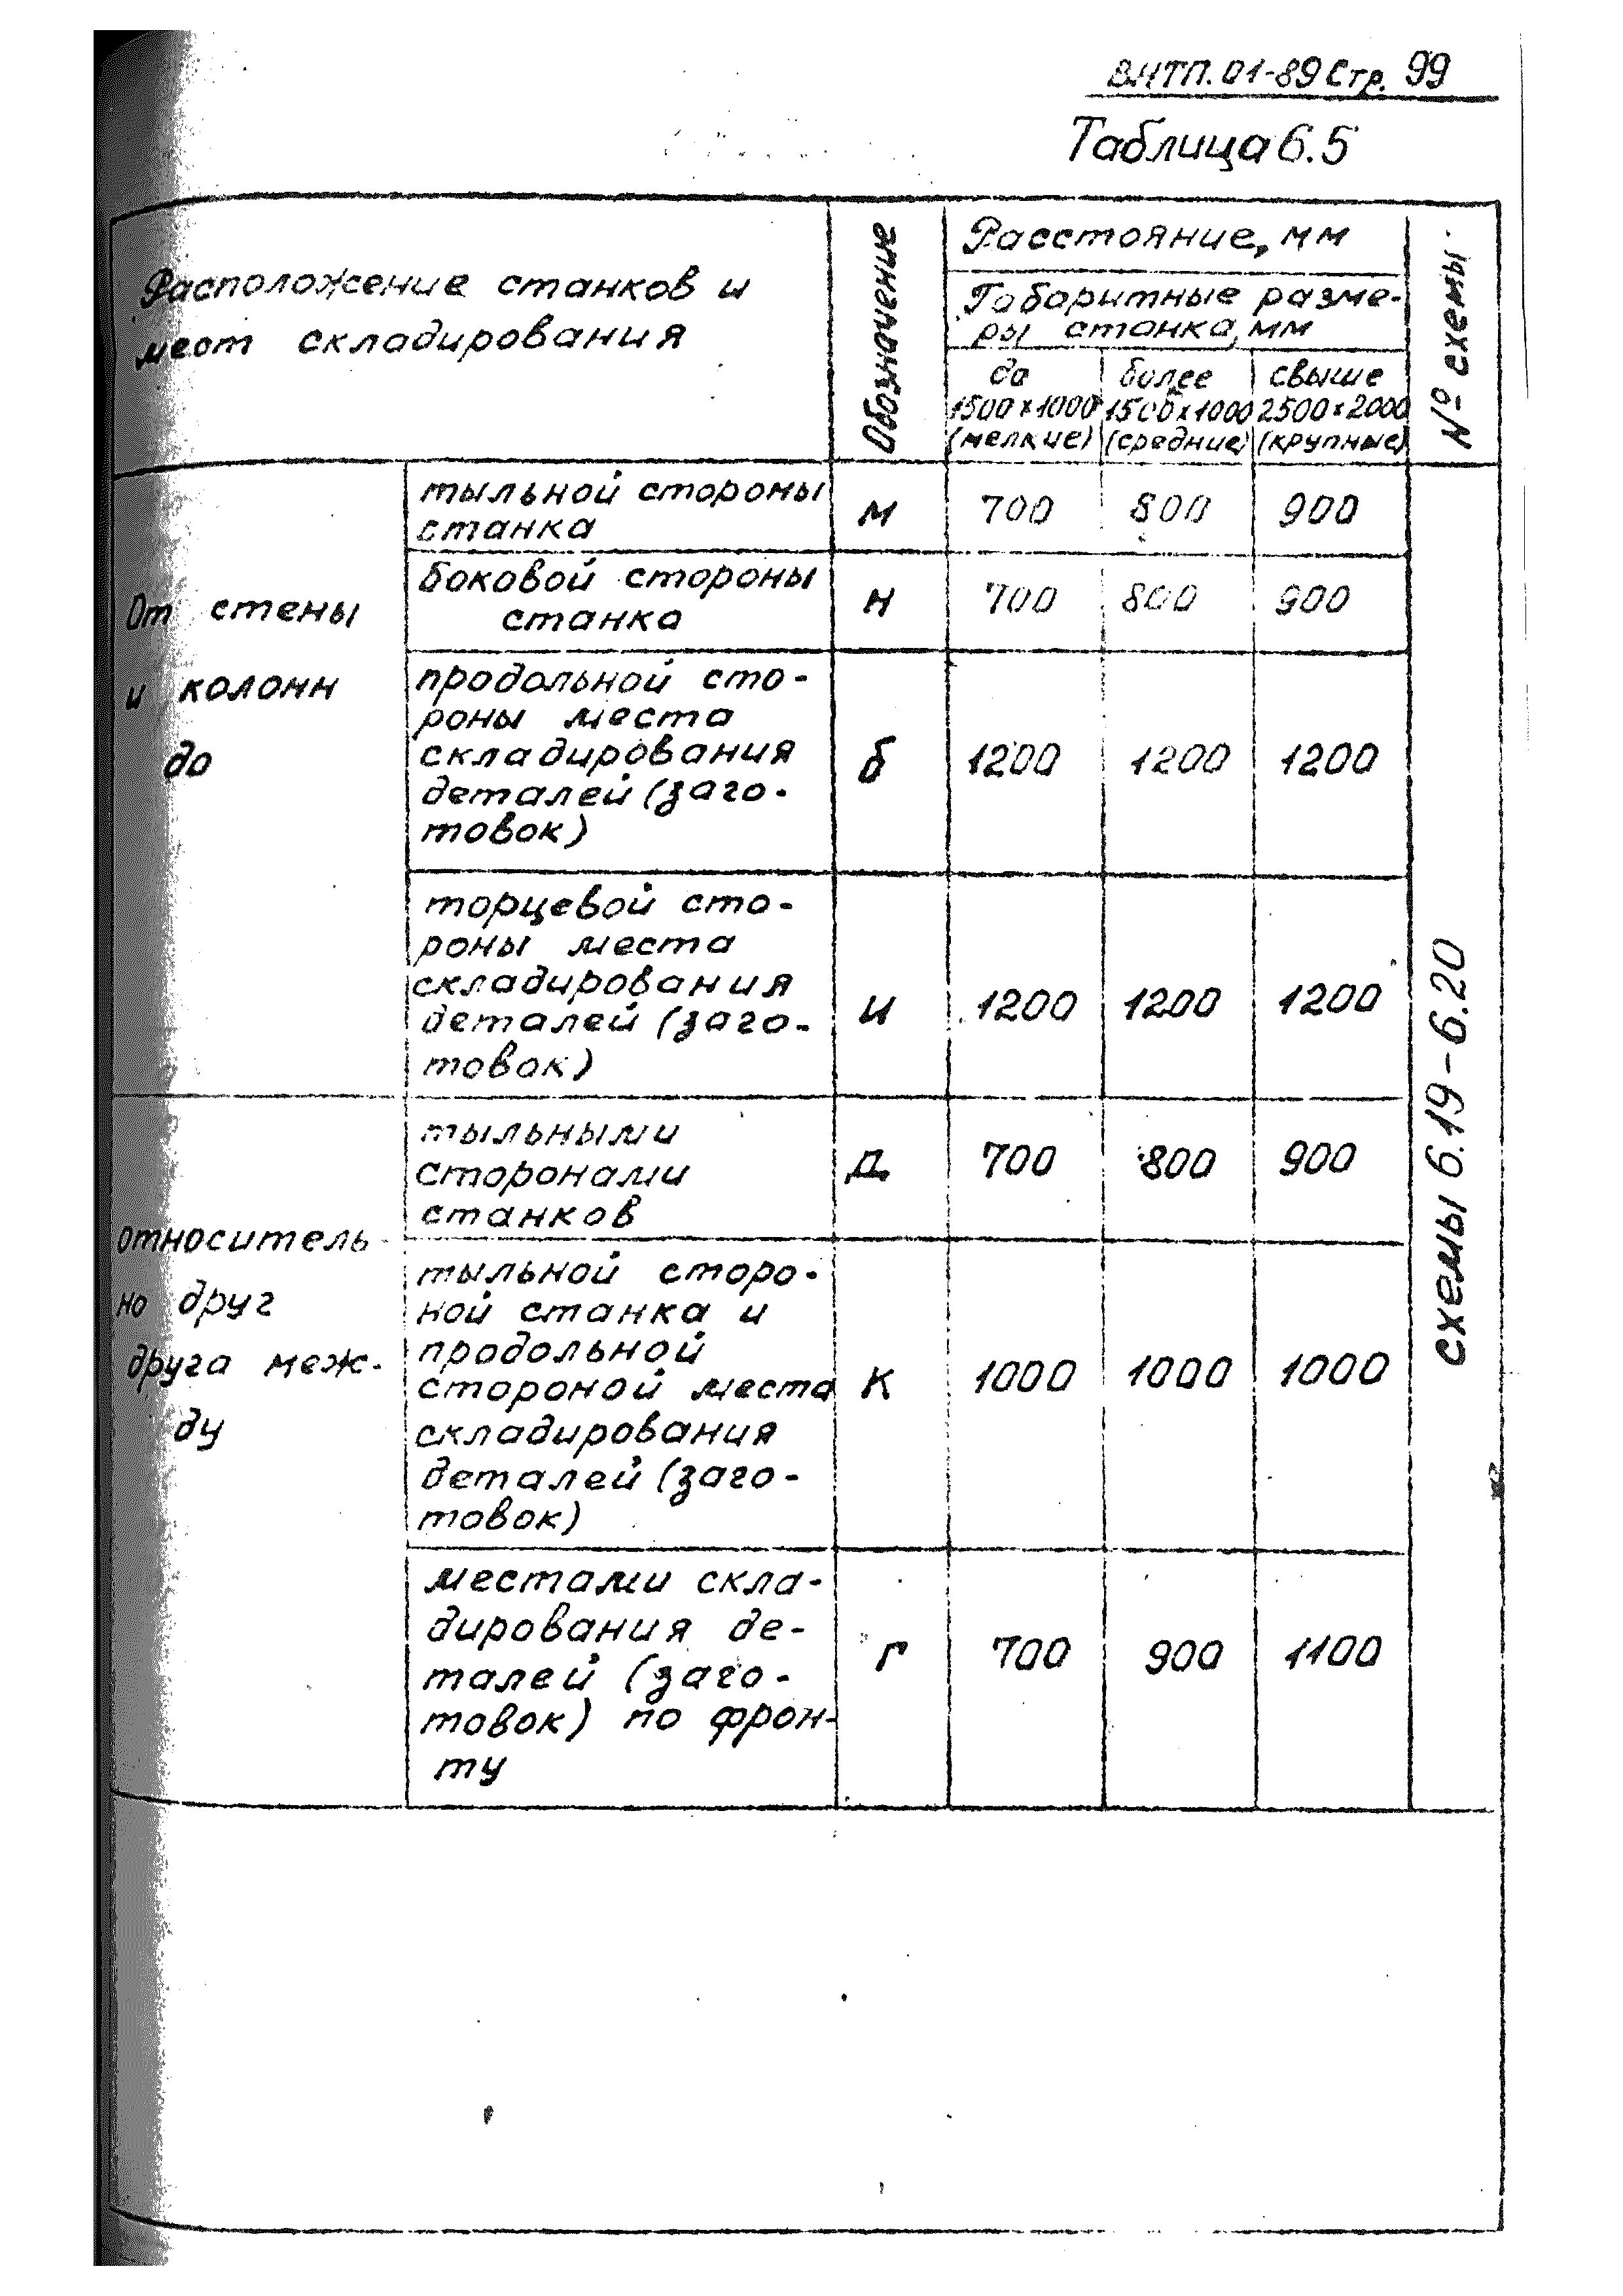 ВНТП.01-89 Стр. 99
Таблица 6.5
Расположение станков и
мест складирования
Обозначение
Расстояние, мм
Габаритные разме-
ры станка, мм
до
1500х1000
(мелкие)
более
1500х1000
(средние)
свыше
2500х2000
(крупные)
№ схемы
От стены
и колонн
до
тыльной стороны
станка
м
700
800
900
боковой стороны
станка
н
700
800
900
продольной сто-
роны места
складирования
деталей (заго-
товок)
б
1200
1200
1200
торцевой сто-
роны места
складирования
деталей (заго-
товок)
и
1200
1200
1200
относитель-
но друг
друга меж-
ду
тыльными
сторонами
станков
д
700
800
900
тыльной сторо-
ной станка и
продольной
стороной места
складирования
деталей (заго-
товок)
к
1000
1000
1000
местами скла-
дирования де-
талей (заго-
товок) по фрон-
ту
г
700
900
1100
схемы 6.19-6.20